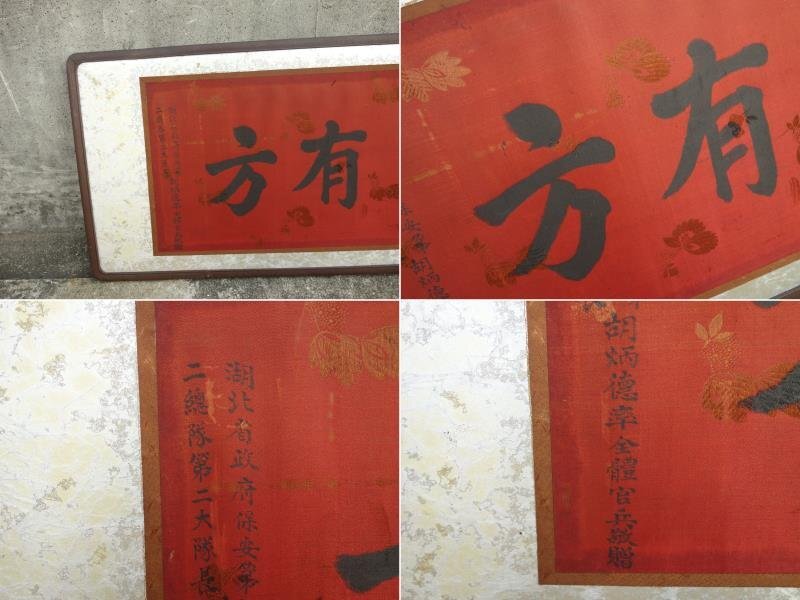 有方
有方
胡炳德
湖北省政府保安第
二總隊第二大隊長
胡炳德率全體官兵敬贈